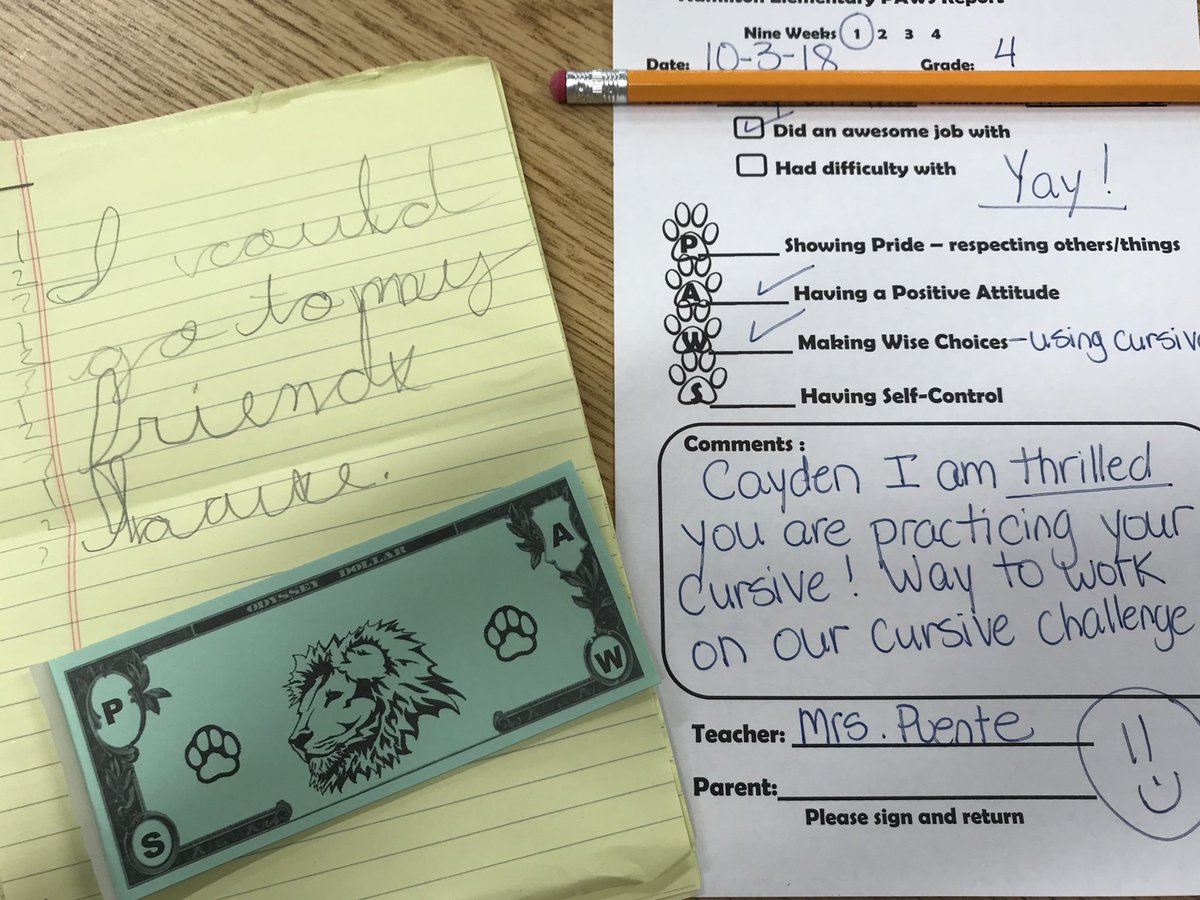 I would
go to my
friends
house.
ODYSSEY DOLLAR
P
A
W
S
Hamilton Elementary PAWS Report
Nine Weeks 1 2 3 4
Date: 10-3-18 Grade: 4
Did an awesome job with
Had difficulty with
Yay!
P Showing Pride – respecting others/things
A Having a Positive Attitude
W Making Wise Choices - using cursive
S Having Self-Control
Comments :
Cayden I am thrilled
you are practicing your
cursive! Way to work
on our cursive challenge
Teacher: Mrs. Puente
Parent:
Please sign and return